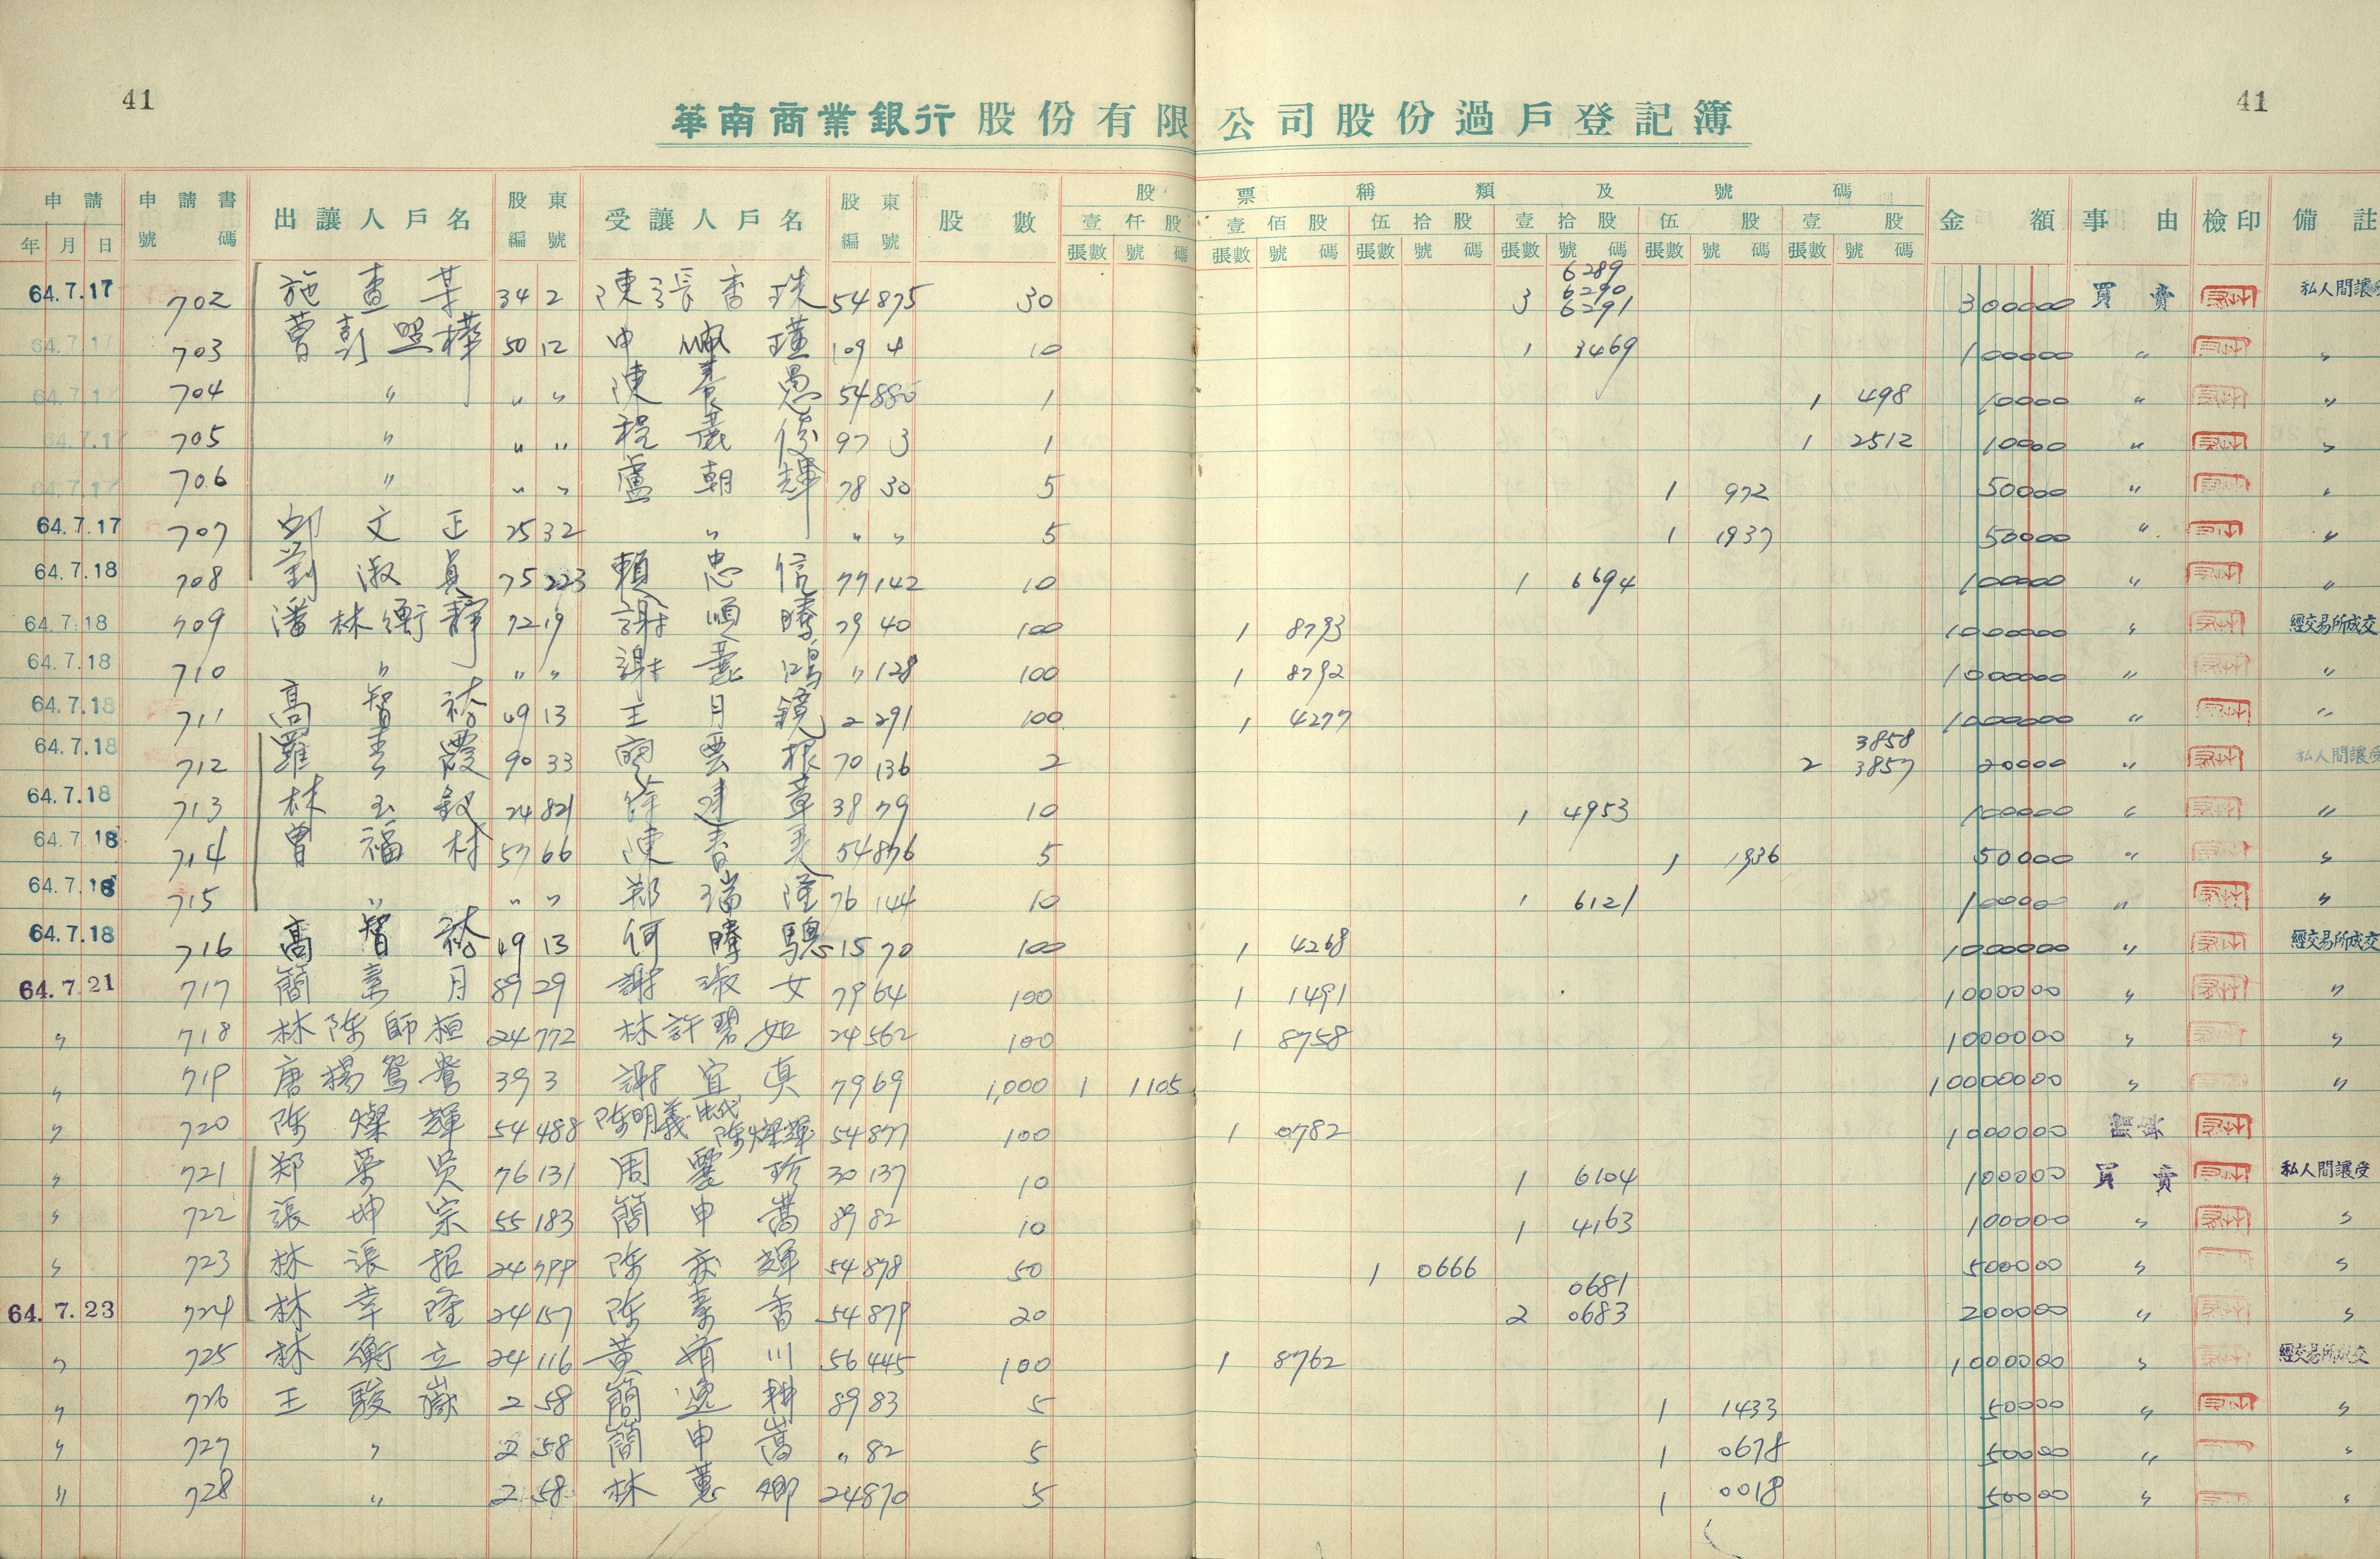 41
41
華南商業銀行股份有限公司股份過戶登記簿
申請 年 月 日 申請書號碼 出讓人戶名 股東編號 受讓人戶名 股東編號 股數 股票種類及號碼 金額 事由 檢印 備註
壹仟股 壹佰股 伍拾股 壹拾股 伍股 壹股
張數 號碼 張數 號碼 張數 號碼 張數 號碼 張數 號碼 張數 號碼
64.7.17 702 施 34 2 陳張香珠 54 875 30 3 6289 6290 6291 300000 買賣 私人間讓受
64.7.17 703 曹彭照樺 50 12 申 瑾 109 4 10 1 3469 100000 〃 〃
64.7.17 704 〃 〃 〃 陳 愚 54 880 1 1 498 10000 〃 〃
64.7.17 705 〃 〃 〃 程 俊 97 3 1 1 2512 10000 〃 〃
64.7.17 706 〃 〃 〃 盧朝輝 78 30 5 1 972 50000 〃 〃
64.7.17 707 邱文正 25 32 〃 〃 〃 5 1 1937 50000 〃 〃
64.7.18 708 劉淑貞 75 223 賴忠信 77 142 10 1 6694 100000 〃 〃
64.7.18 709 潘林衡靜 72 19 謝順騰 79 40 100 1 8793 1000000 〃 經交易所成交
64.7.18 710 〃 〃 〃 謝 鴻 〃 128 100 1 8792 1000000 〃 〃
64.7.18 711 高智裕 49 13 王月鏡 2 291 100 1 4277 1000000 〃 〃
64.7.18 712 羅 霞 90 33 雲根 70 136 2 2 3858 3857 20000 〃 私人間讓受
64.7.18 713 林玉 24 821 徐建章 38 79 10 1 4953 100000 〃 〃
64.7.18 714 曾福村 57 66 陳春美 54 876 5 1 1936 50000 〃 〃
64.7.18 715 〃 〃 〃 郑瑞隆 76 144 10 1 6121 100000 〃 〃
64.7.18 716 高智裕 49 13 何騰驄 15 70 100 1 4268 1000000 〃 經交易所成交
64.7.21 717 簡素月 89 29 謝淑女 79 64 100 1 1491 1000000 〃 〃
〃 718 林陈師桓 24 772 林許碧如 24 562 100 1 8758 1000000 〃 〃
〃 719 唐楊鴛鴦 39 3 謝宜真 79 69 1,000 1 1105 10000000 〃 〃
〃 720 陈燦輝 54 488 陈明義 法代 陈燦輝 54 877 100 1 0782 1000000 贈與
〃 721 郑 76 131 周 珍 30 137 10 1 6104 100000 買賣 私人間讓受
〃 722 張坤宗 55 183 簡申 89 82 10 1 4163 100000 〃 〃
〃 723 林張招 24 799 陈 輝 54 878 50 1 0666 500000 〃 〃
64.7.23 724 林幸隆 24 157 陈素香 54 879 20 2 0681 0683 200000 〃 〃
〃 725 林衡立 24 116 黃 川 56 445 100 1 8762 1000000 〃 經交易所成交
〃 726 王駿嶽 2 58 簡逸耕 89 83 5 1 1433 50000 〃 〃
〃 727 〃 2 58 簡申 〃 82 5 1 0678 50000 〃 〃
〃 728 〃 2 58 林蕙卿 24 870 5 1 0018 50000 〃 〃